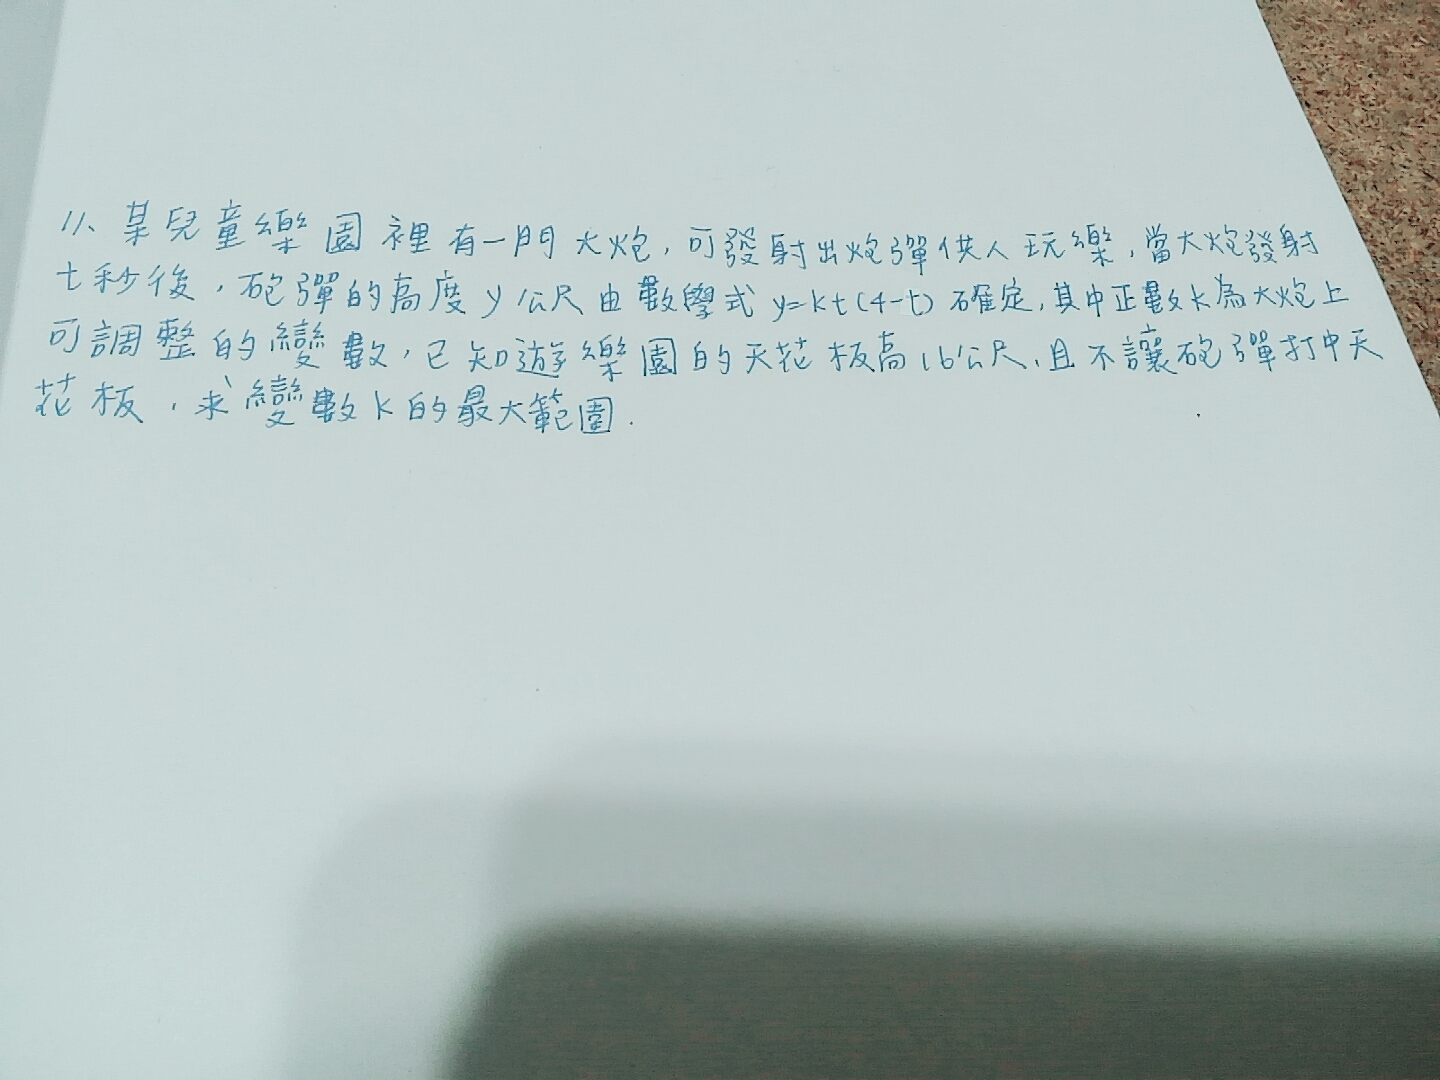 11、某兒童樂園裡有一門大炮,可發射出炮彈供人玩樂,當大炮發射
t秒後,砲彈的高度y公尺由數學式y=kt(4-t)確定,其中正數k為大炮上
可調整的變數,已知遊樂園的天花板高16公尺,且不讓砲彈打中天
花板,求變數k的最大範圍.